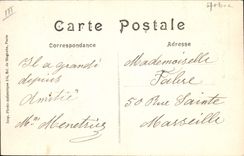 Carte Postale
Correspondance
Adresse
Il a grandi
depuis
Amitié
Mme Menetrier
Mademoiselle
Fabre
50 Rue Sainte
Marseille